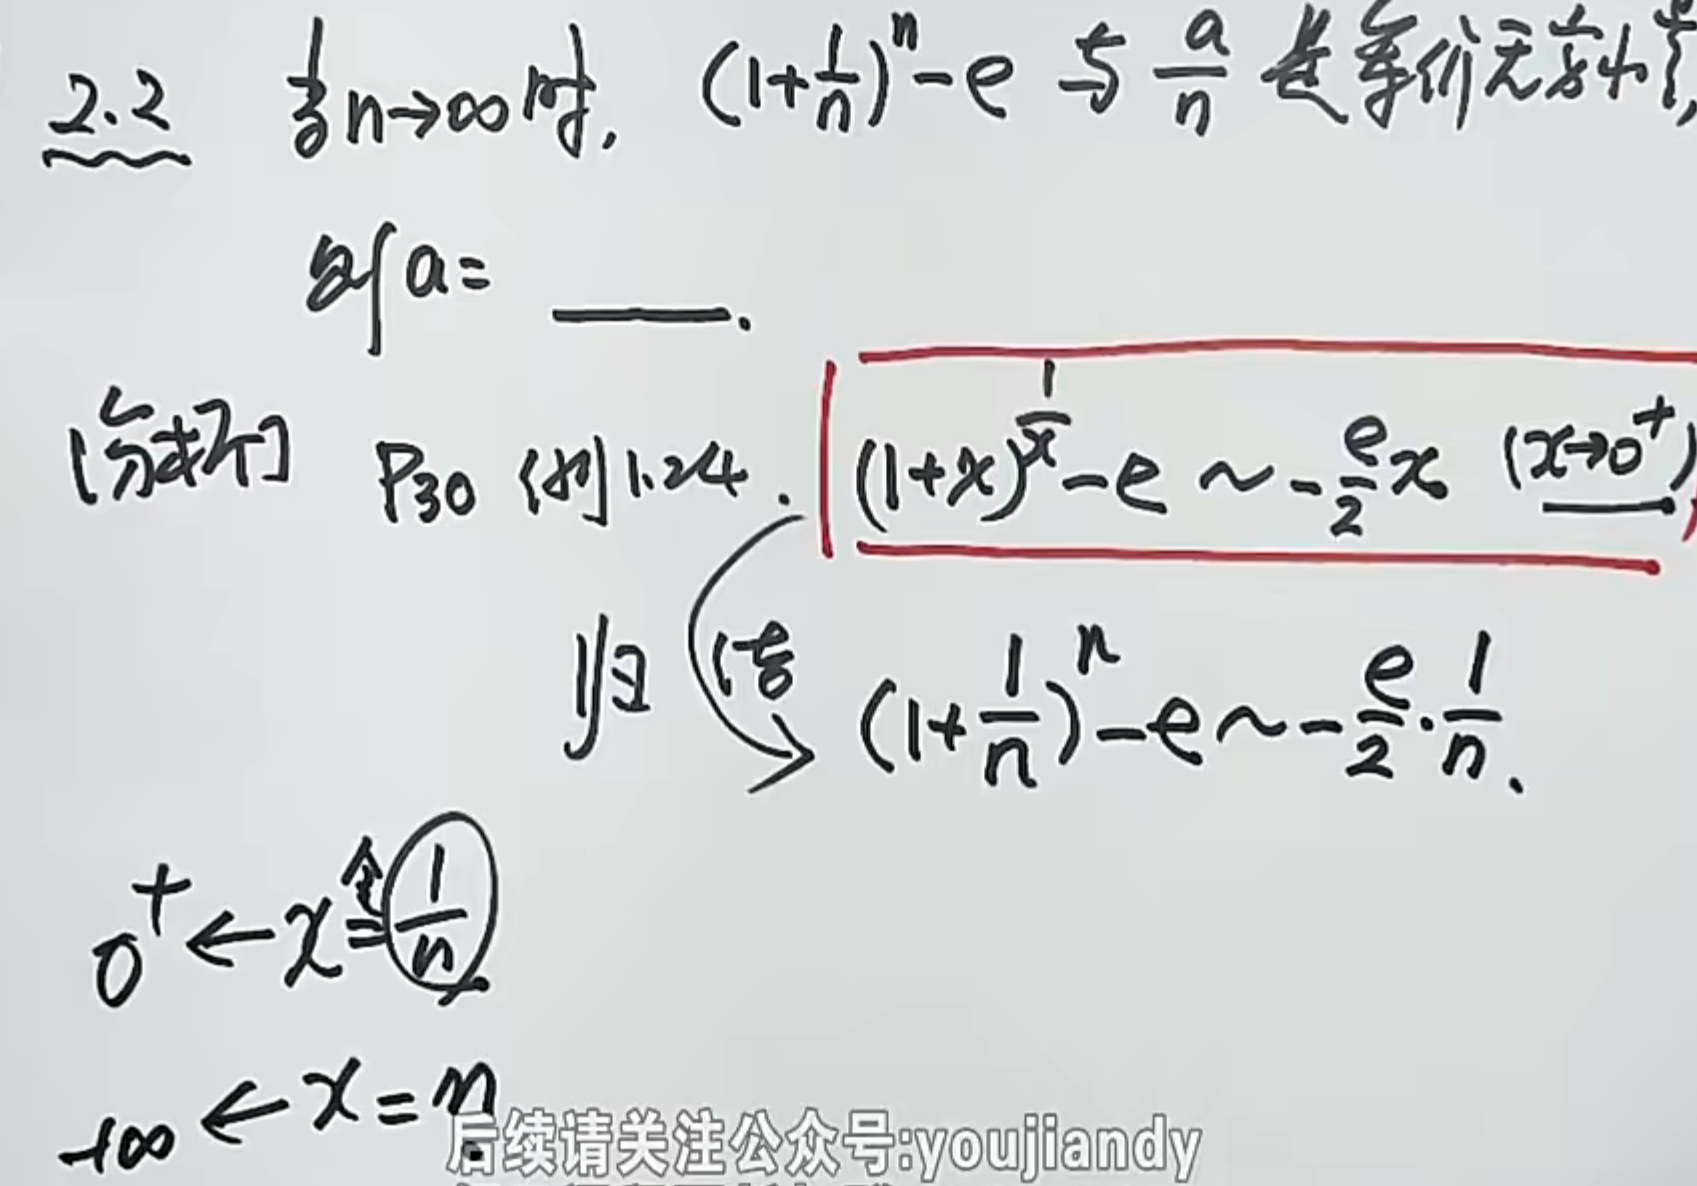 2.2 当n→∞时, (1+1/n)^n-e 与 a/n 是等价无穷小量,
则a= ____.
[分析] P30 例1.24. (1+x)^(1/x)-e ~ -e/2 x (x→0⁺)
归结 (1+1/n)^n-e ~ -e/2 · 1/n.
0⁺ ← x 令= 1/n
+∞ ← x = n.
后续请关注公众号:youjiandy